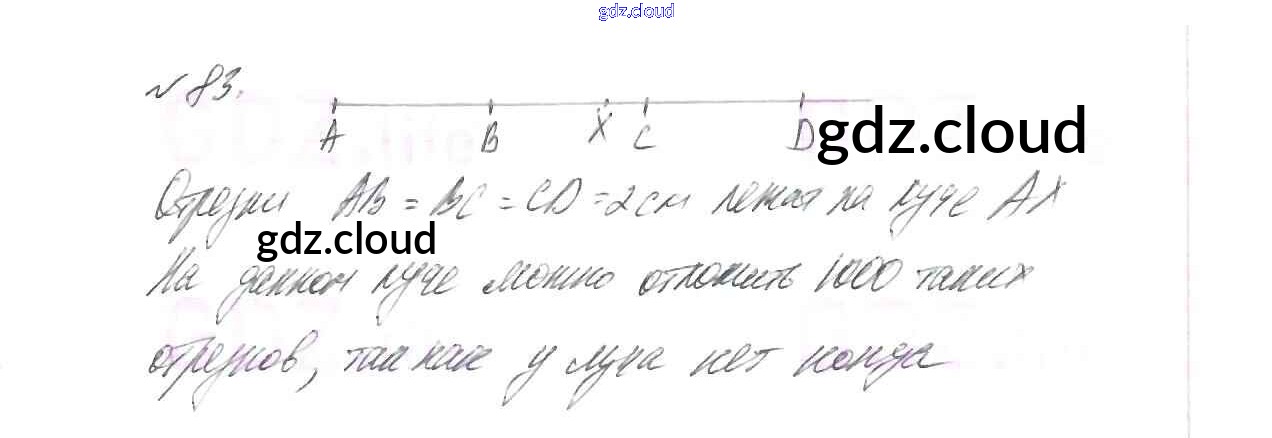 gdz.cloud
№ 83.
A B X C D
gdz.cloud
Отрезки AB = BC = CD = 2см лежат на луче AX
gdz.cloud
На данном луче можно отложить 1000 таких
отрезков, так как у луча нет конца